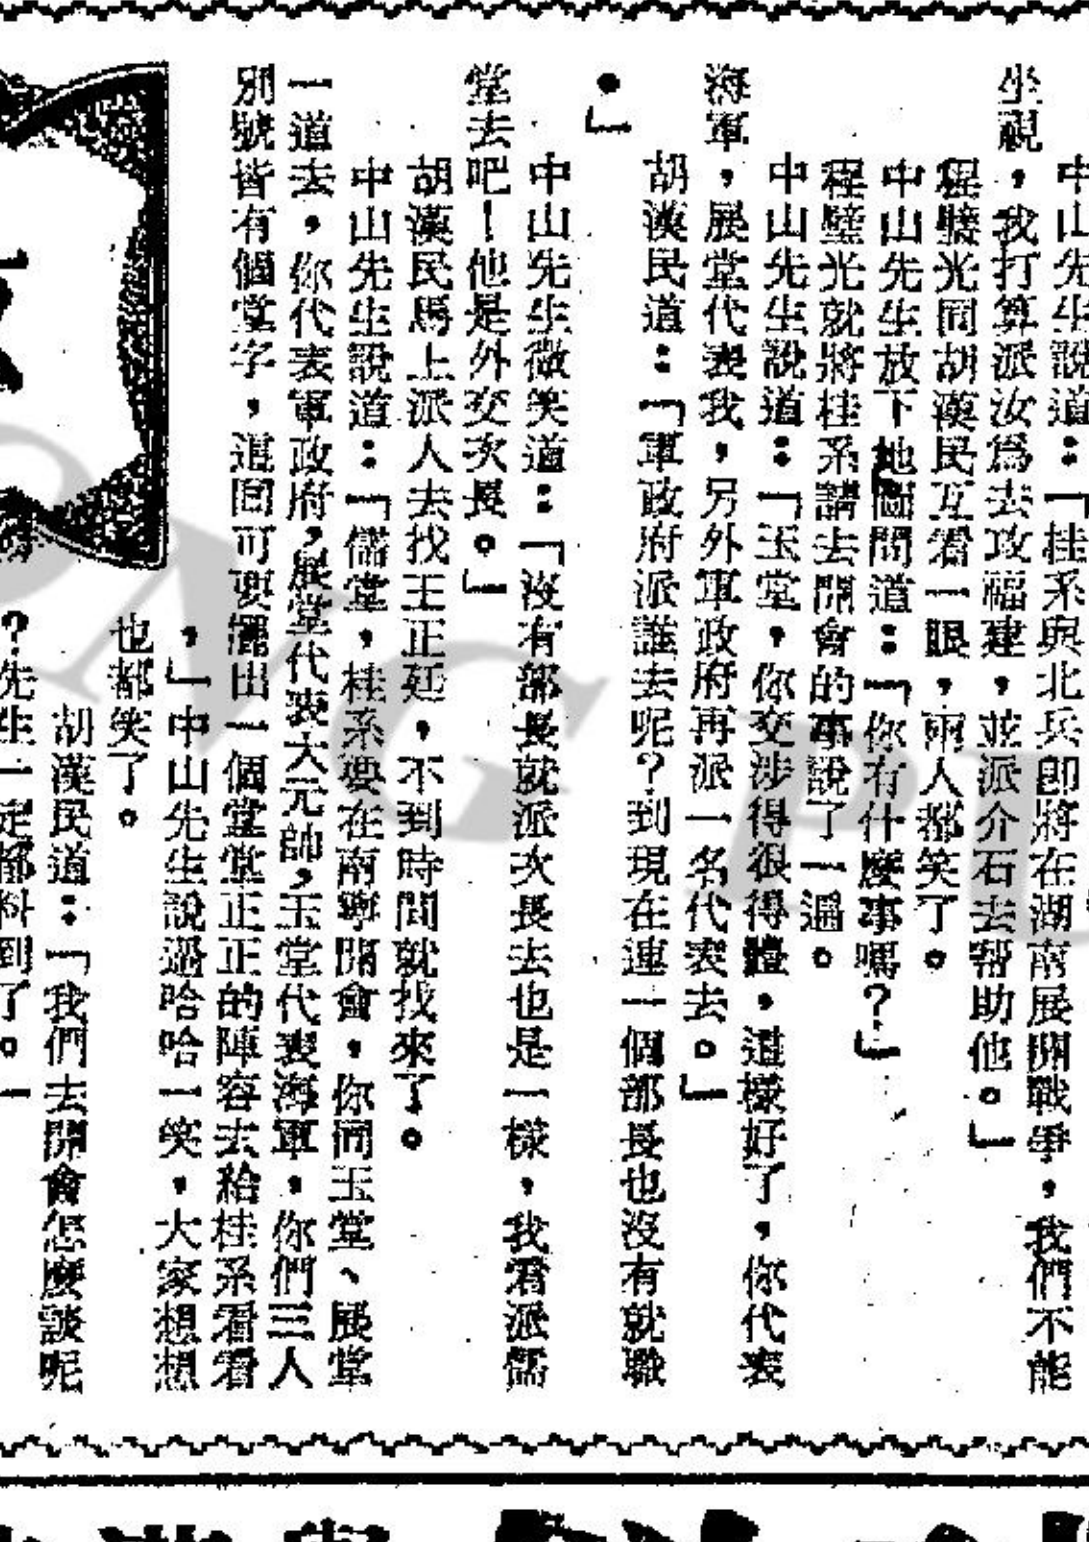 中山先生說道：「桂系與北兵卽將在湖南展開戰爭，我們不能
坐視，我打算派汝爲去攻福建，並派介石去帮助他。」
程璧光同胡漢民互看一眼，兩人都笑了。
中山先生放下地圖問道：「你有什麼事嗎？」
程璧光就將桂系請去開會的事說了一遍。
中山先生說道：「玉堂，你交涉得很得體，這樣好了，你代表
海軍，展堂代表我，另外軍政府再派一名代表去。」
胡漢民道：「軍政府派誰去呢？到現在連一個部長也沒有就職
。」
中山先生微笑道：「沒有部長就派次長去也是一樣，我看派儒
堂去吧！他是外交次長。」
胡漢民馬上派人去找王正廷，不到時間就找來了。
中山先生說道：「儒堂，桂系要在南寧開會，你同玉堂、展堂
一道去，你代表軍政府，展堂代表大元帥，玉堂代表海軍，你們三人
別號皆有個堂字，這回可要擺出一個堂堂正正的陣容去給桂系看看
，」中山先生說過哈哈一笑，大家想想
也都笑了。
胡漢民道：「我們去開會怎麼談呢
？先生一定都料到了。」